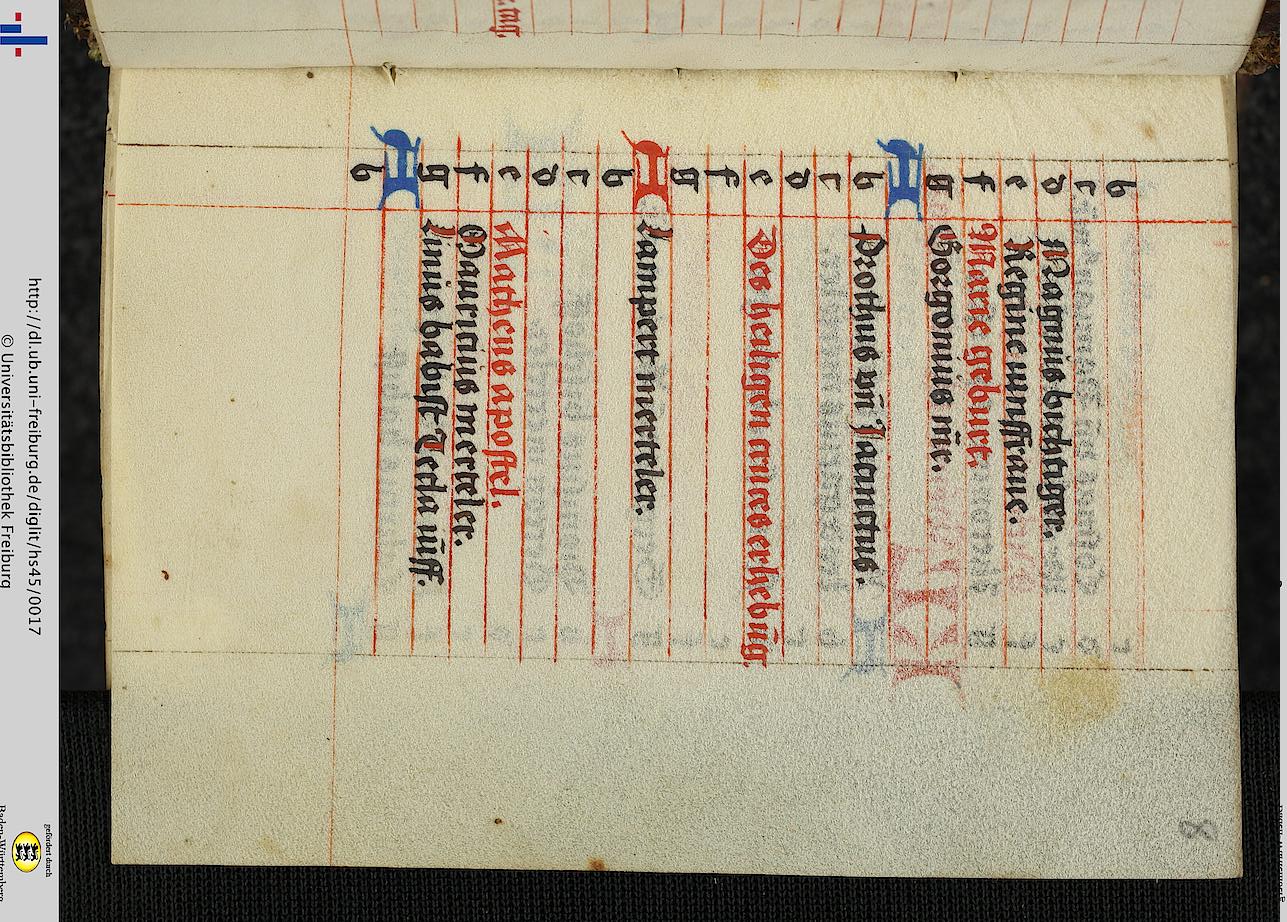 b
c
d Magnus bichtiger.
e Regine iunffraue.
f Marie geburt.
g Gorgonius m̄r.
A
b Prothus vn̄ Jacinctus.
c
d
e Des heiligen cruces erhebūg
f
g
A Lampert merteler.
b
c
d
e Matheus apostel.
f Mauricius merteler.
g Linius babst Tecla iūff.
A
b
8
tag.
http://dl.ub.uni-freiburg.de/diglit/hs45/0017
© Universitätsbibliothek Freiburg
gefördert durch
Baden-Württemberg